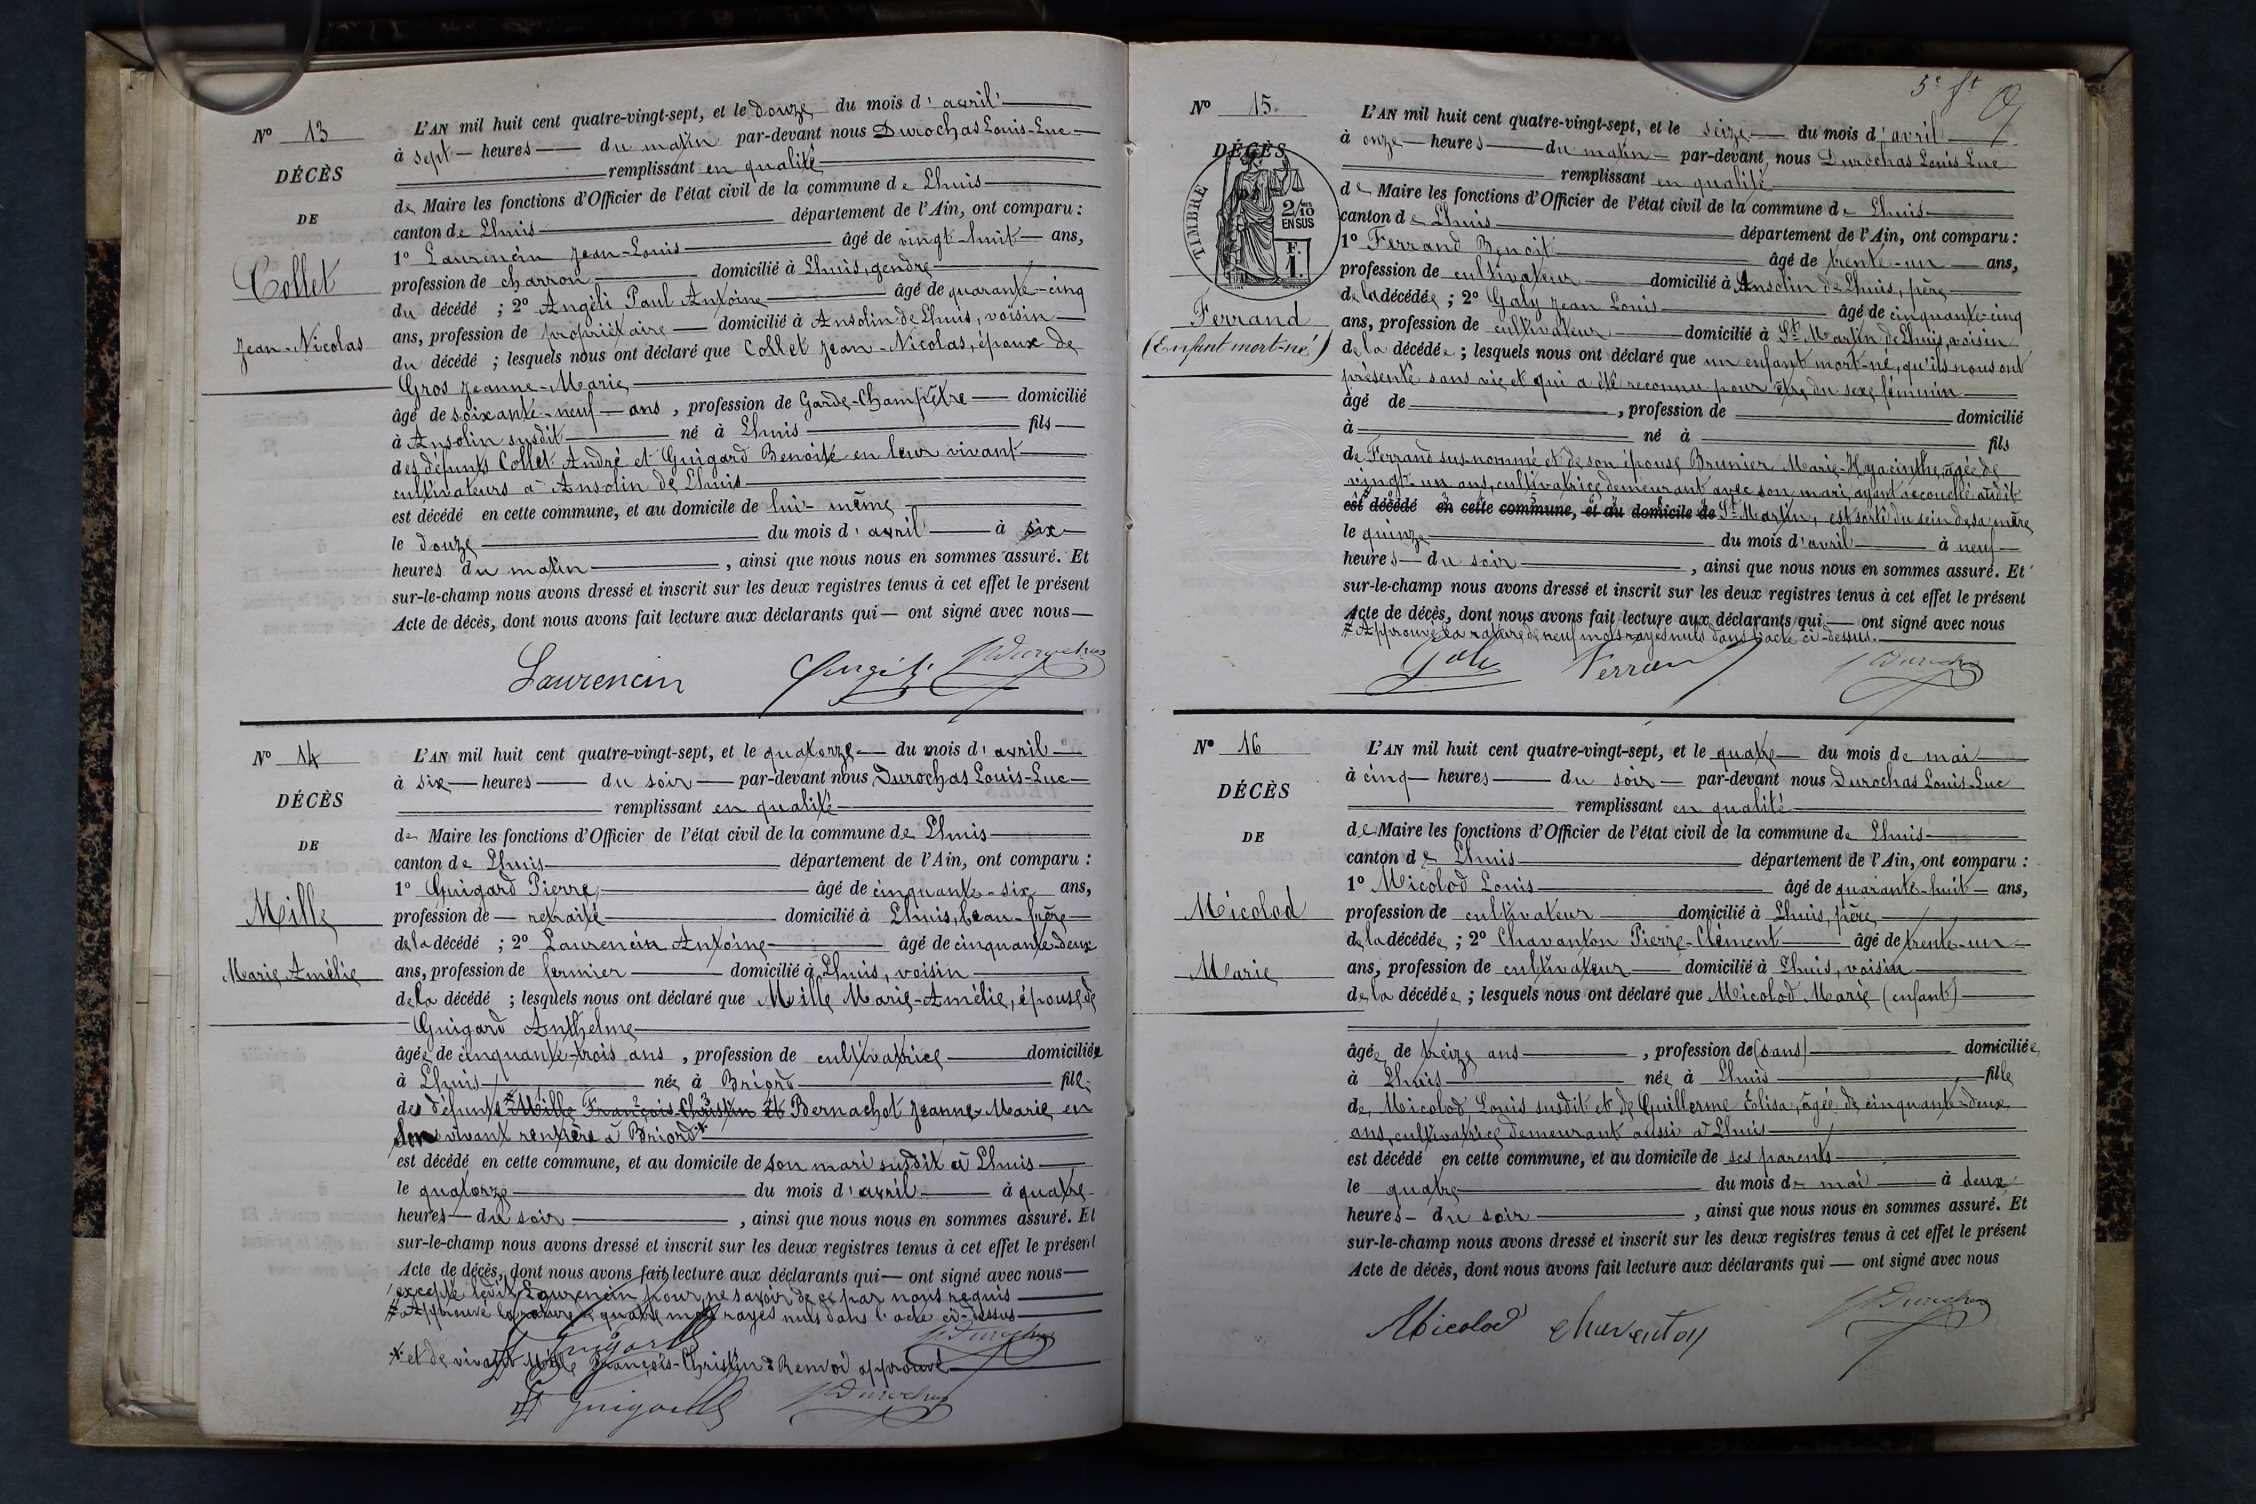 N° 13
DÉCÈS
DE
Collet
Jean-Nicolas
L'AN mil huit cent quatre-vingt-sept, et le douze du mois d'avril
à sept heures du matin par-devant nous Durochas Louis-Luc
remplissant en qualité
de Maire les fonctions d'Officier de l'état civil de la commune de Lhuis
canton de Lhuis département de l'Ain, ont comparu :
1° Laurencin Jean-Louis âgé de vingt-huit ans,
profession de charron domicilié à Lhuis, gendre
du décédé ; 2° Angéli Paul Antoine âgé de quarante-cinq
ans, profession de propriétaire domicilié à Ansolin de Lhuis, voisin
du décédé ; lesquels nous ont déclaré que Collet Jean-Nicolas, époux de
Gros Jeanne-Marie
âgé de soixante-neuf ans, profession de Garde-Champêtre domicilié
à Ansolin susdit né à Lhuis fils
des défunts Collet André et Guigard Benoite en leur vivant
cultivateurs à Ansolin de Lhuis
est décédé en cette commune, et au domicile de lui-même
le douze du mois d'avril à six
heures du matin, ainsi que nous nous en sommes assuré. Et
sur-le-champ nous avons dressé et inscrit sur les deux registres tenus à cet effet le présent
Acte de décès, dont nous avons fait lecture aux déclarants qui ont signé avec nous
Laurencin Angéli Durochas
N° 14
DÉCÈS
DE
Mille
Marie Amélie
L'AN mil huit cent quatre-vingt-sept, et le quatorze du mois d'avril
à six heures du soir par-devant nous Durochas Louis-Luc
remplissant en qualité
de Maire les fonctions d'Officier de l'état civil de la commune de Lhuis
canton de Lhuis département de l'Ain, ont comparu :
1° Guigard Pierre, âgé de cinquante-six ans,
profession de retraité domicilié à Lhuis, beau-frère
de la décédé ; 2° Laurencin Antoine âgé de cinquante-deux
ans, profession de fermier domicilié à Lhuis, voisin
de la décédé ; lesquels nous ont déclaré que Mille Marie-Amélie, épouse de
Guigard Anthelme
âgée de cinquante-trois ans, profession de cultivatrice domiciliée
à Lhuis née à Briord fille
des défunts Mille François-Christin et Bernachot Jeanne-Marie en
son vivant rentière à Briord
est décédé en cette commune, et au domicile de son mari susdit à Lhuis
le quatorze du mois d'avril à quatre
heures du soir, ainsi que nous nous en sommes assuré. Et
sur-le-champ nous avons dressé et inscrit sur les deux registres tenus à cet effet le présent
Acte de décès, dont nous avons fait lecture aux déclarants qui ont signé avec nous
excepté ledit Laurencin pour ne savoir de ce par nous requis
Approuvé la rature de quatre mots rayés nuls dans l'acte ci-dessus
Guigard Durochas
et de vivant Mille François-Christin : Renvoi approuvé
Guigard Durochas
5e ft
N° 15.
DÉCÈS
TIMBRE
2/10
EN SUS
F.
1.
Ferrand
(Enfant mort-né)
L'AN mil huit cent quatre-vingt-sept, et le seize du mois d'avril
à onze heures du matin par-devant nous Durochas Louis Luc
remplissant en qualité
de Maire les fonctions d'Officier de l'état civil de la commune de Lhuis
canton de Lhuis département de l'Ain, ont comparu :
1° Ferrand Benoit âgé de trente-un ans,
profession de cultivateur domicilié à Ansolin de Lhuis, père
de la décédée ; 2° Galy Jean Louis âgé de cinquante-cinq
ans, profession de cultivateur domicilié à St Martin de Lhuis, voisin
de la décédée ; lesquels nous ont déclaré que un enfant mort-né, qu'ils nous ont
présenté sans vie et qui a été reconnu pour être du sexe féminin
âgé de, profession de domicilié
à né à fils
de Ferrand sus-nommé et de son épouse Brunier Marie-Hyacinthe, âgée de
vingt-un ans, cultivatrice demeurant avec son mari, ayant accouché audit
est décédé en cette commune, et au domicile de St Martin, est sorti du sein de sa mère
le quinze du mois d'avril à neuf
heures du soir, ainsi que nous nous en sommes assuré. Et
sur-le-champ nous avons dressé et inscrit sur les deux registres tenus à cet effet le présent
Acte de décès, dont nous avons fait lecture aux déclarants qui ont signé avec nous
Approuvé la rature de neuf mots rayés nuls dans l'acte ci-dessus.
Galy Ferrand Durochas
N° 16
DÉCÈS
DE
Micolod
Marie
L'AN mil huit cent quatre-vingt-sept, et le quatre du mois de mai
à cinq heures du soir par-devant nous Durochas Louis-Luc
remplissant en qualité
de Maire les fonctions d'Officier de l'état civil de la commune de Lhuis
canton de Lhuis département de l'Ain, ont comparu :
1° Micolod Louis âgé de quarante-huit ans,
profession de cultivateur domicilié à Lhuis, père
de la décédée ; 2° Chavanton Pierre-Clément âgé de trente-un
ans, profession de cultivateur domicilié à Lhuis, voisin
de la décédée ; lesquels nous ont déclaré que Micolod Marie (enfant)
âgée de treize ans, profession de (sans) domiciliée
à Lhuis née à Lhuis fille
de Micolod Louis susdit et de Guillerme Élisa, âgée de cinquante-deux
ans, cultivatrice demeurant aussi à Lhuis
est décédé en cette commune, et au domicile de ses parents
le quatre du mois de mai à deux
heures du soir, ainsi que nous nous en sommes assuré. Et
sur-le-champ nous avons dressé et inscrit sur les deux registres tenus à cet effet le présent
Acte de décès, dont nous avons fait lecture aux déclarants qui ont signé avec nous
Micolod Chavanton Durochas